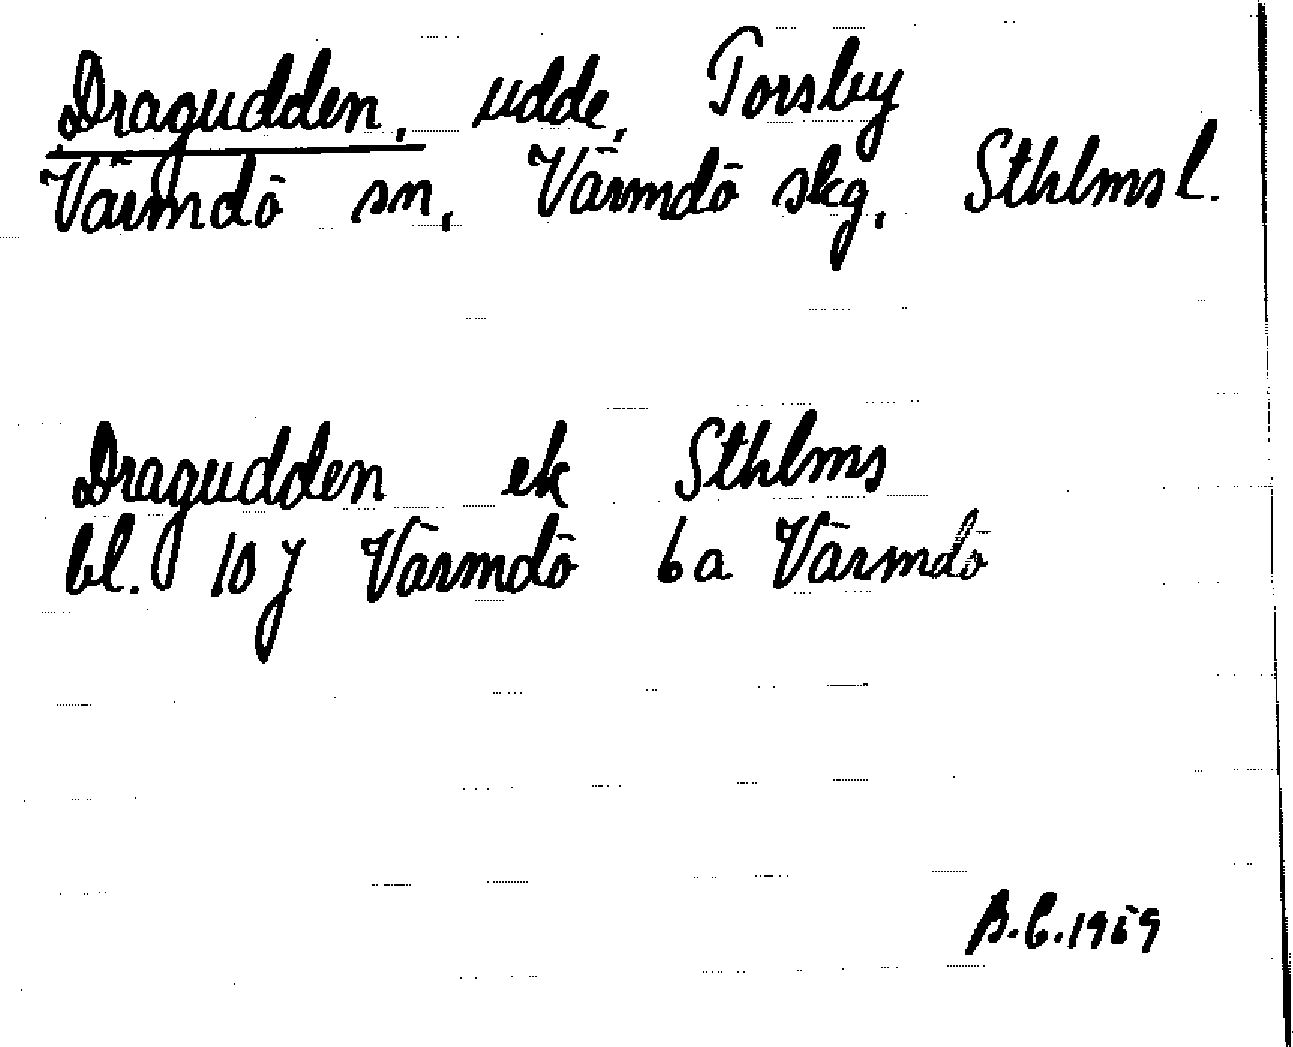 Dragudden, udde, Torsby
Värmdö sn, Värmdö skg, Sthlms l.
Dragudden ek Sthlms
bl. 10 j Värmdö 6a Värmdö
B.C. 1959